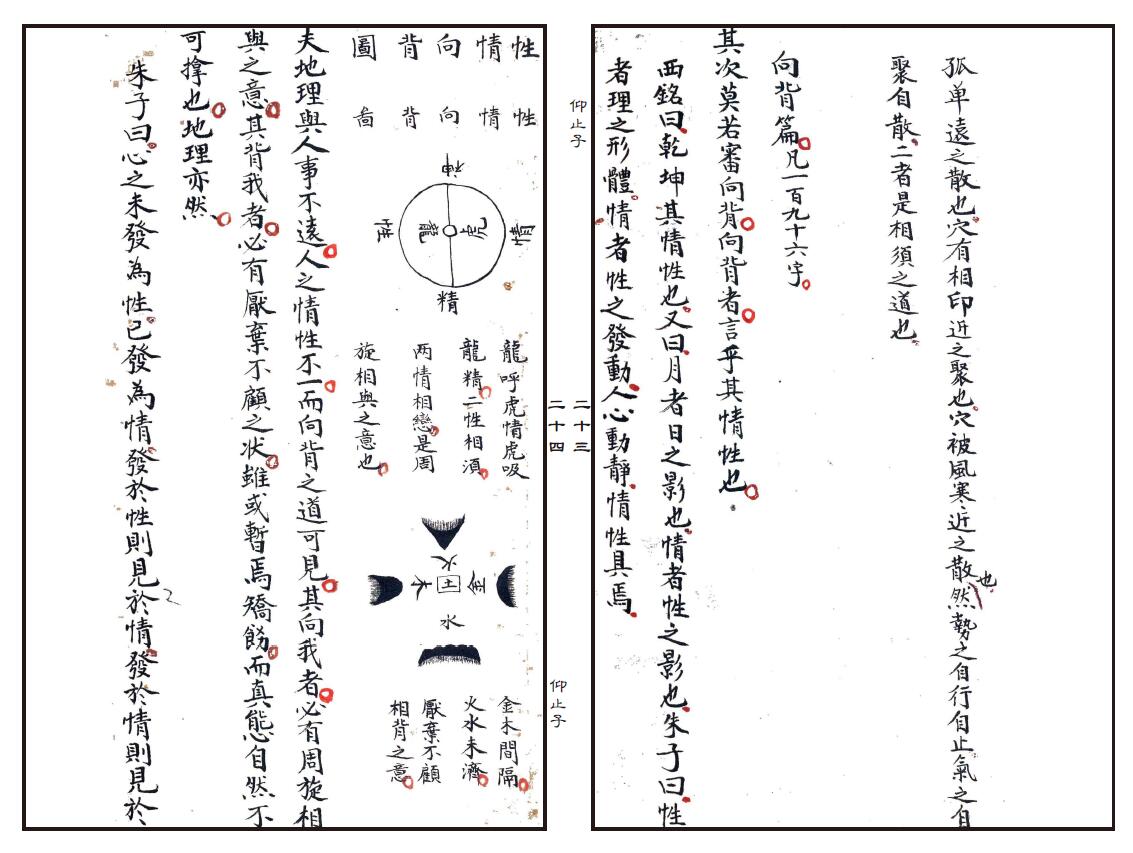 孤单遠之散也穴有相印近之聚也穴被風寒近之散也然勢之自行自止氣之自
聚自散二者是相須之道也
向背篇凡一百九十六字
其次莫若審向背向背者言乎其情性也
西銘曰乾坤其情性也又曰月者日之影也情者性之影也朱子曰性
者理之形體情者性之發動人心動靜情性具焉
仰止子
二十三
二十四
仰止子
性情向背圖
性情向背啚
神
情
虎
龍
性
精
龍呼虎情虎吸
龍精二性相須
两情相戀是周
旋相與之意也
火
金
土
木
水
金木間隔
火水未濟
厭棄不顧
相背之意
夫地理與人事不遠人之情性不一而向背之道可見其向我者必有周旋相
與之意其背我者必有厭棄不顧之状雖或暫焉矯餝而真態自然不
可揜也地理亦然
朱子曰心之未發為性已發為情發於性則見於情發於情則見於